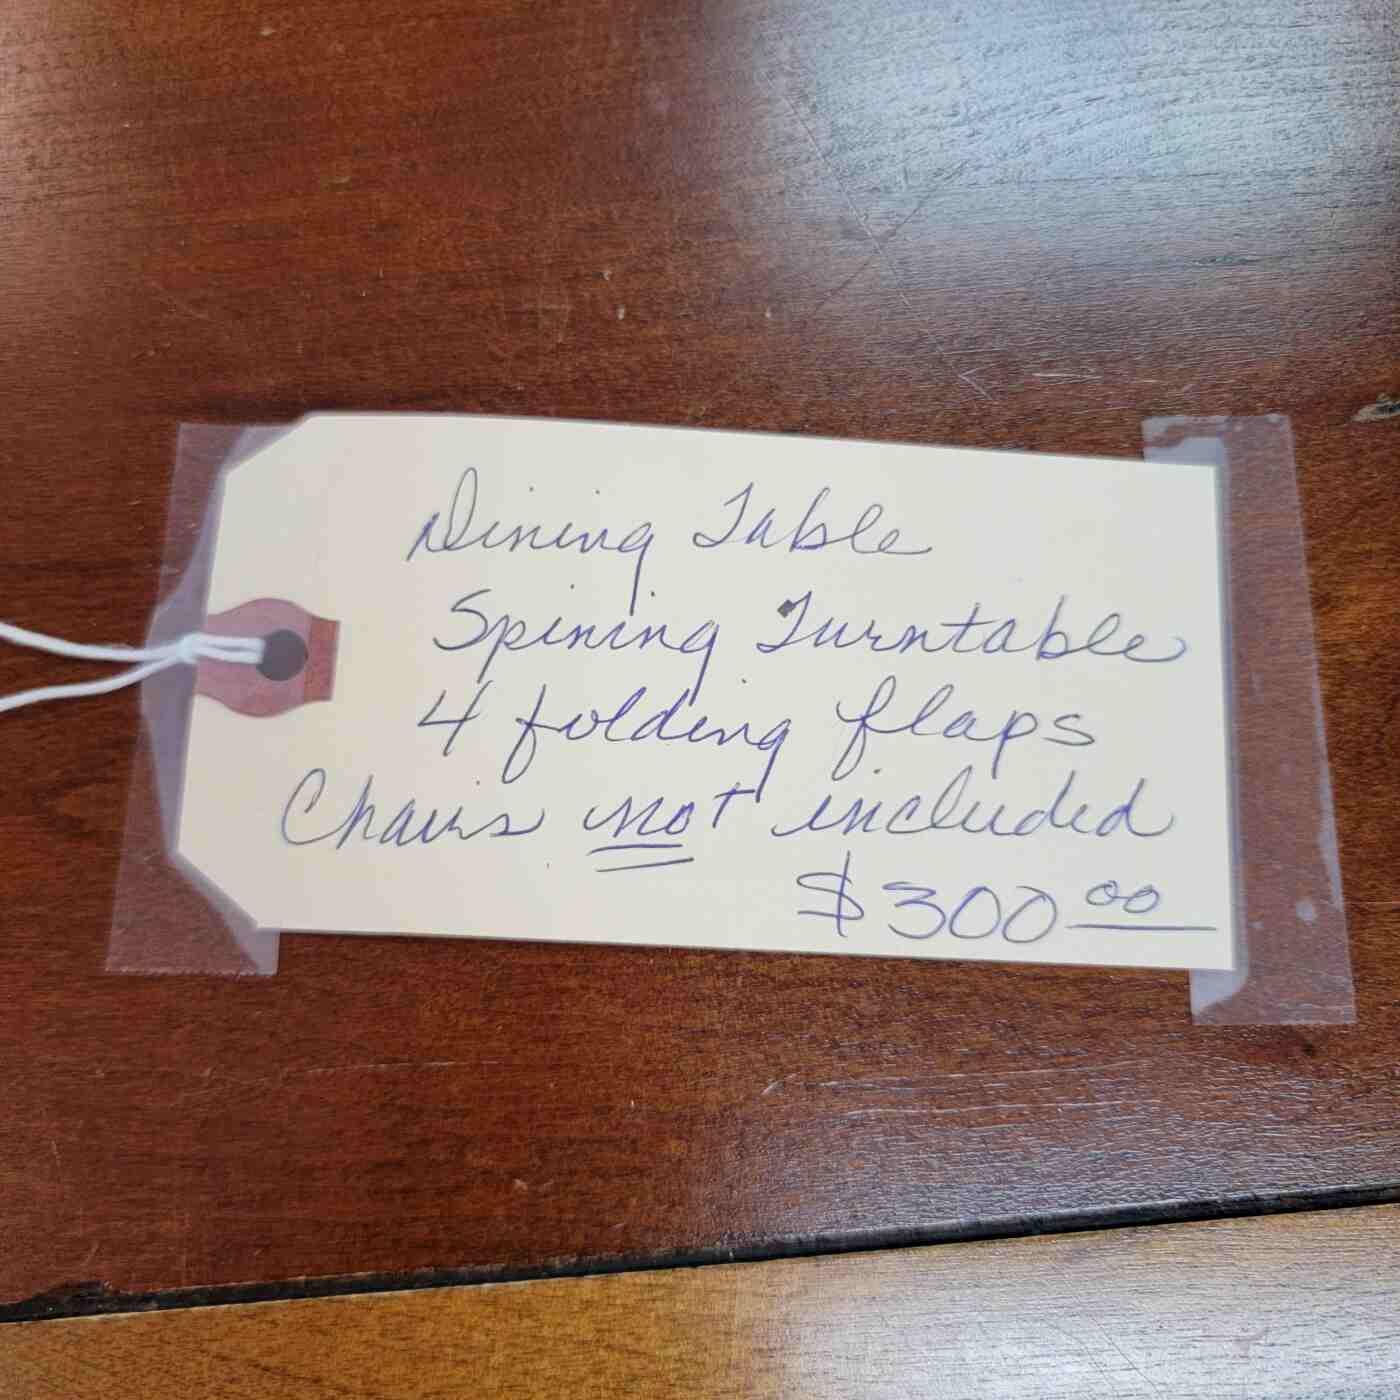 Dining Table
Spining Turntable
4 folding flaps
Chairs not included
$300.00